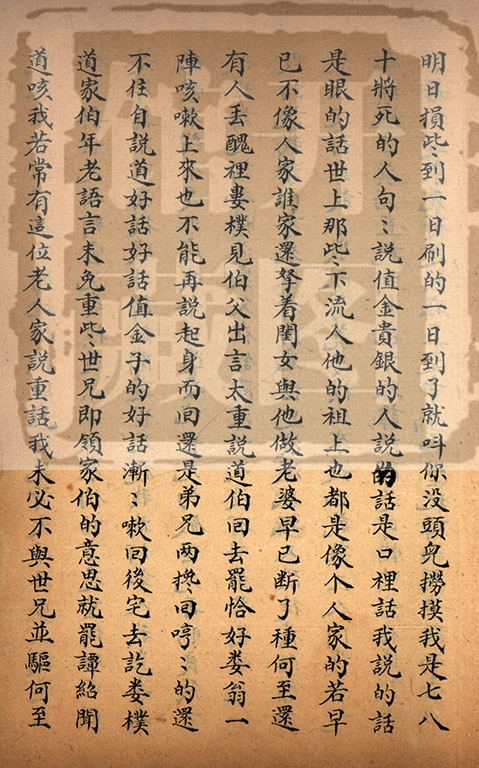 明日損些〻到一日刷的一日到了就叫你没頭皃撈摸我是七八
十將死的人句〻說值金貴銀的人說的話是口裡話我說的話
是眼的話世上那些〻下流人他的祖上也都是像个人家的若早
已不像人家誰家還孥着閨女與他做老婆早已断了種何至還
有人丢醜裡婁樸見伯父出言太重說道伯回去罷恰好娄翁一
陣咳嗽上來也不能再說起身而回還是弟兄两攙回哼〻的還
不住自說道好話好話值金子的好話漸〻嗽回後宅去訖娄樸
道家伯年老語言未免重些〻世兄即領家伯的意思就罷譚紹聞
道咳我若常有這位老人家說重話我未必不與世兄並驅何至